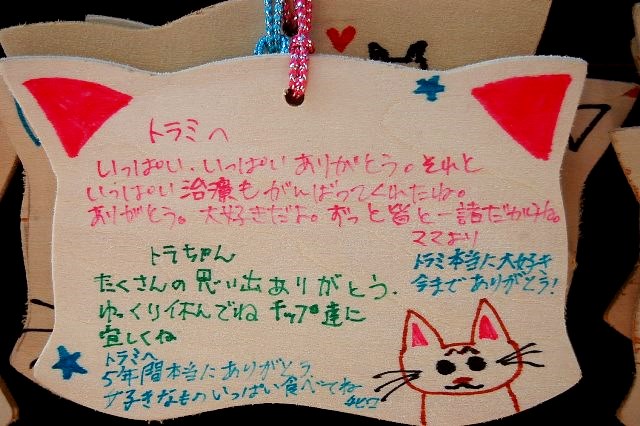 トラミへ
いっぱい、いっぱいありがとう。それと
いっぱい治療もがんばってくれたね。
ありがとう。大好きだよ。ずっと皆と一諸だからね。
ママより
トラちゃん
たくさんの思い出ありがとう.
ゆっくり休んでね チップ達に
宜しくね
トラミ本当に大好き
今までありがとう!
トラミへ
5年間本当にありがとう
好きなものいっぱい食べてね